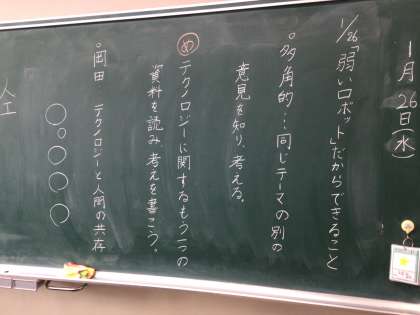 1月26日(水)
1/26「弱いロボット」だからできること
○多角的…同じテーマの別の
意見を知り、考える。
め テクノロジーに関するもう一つの
資料を読み、考えを書こう。
○岡田 テクノロジーと人間の共存
○○○○○
人工